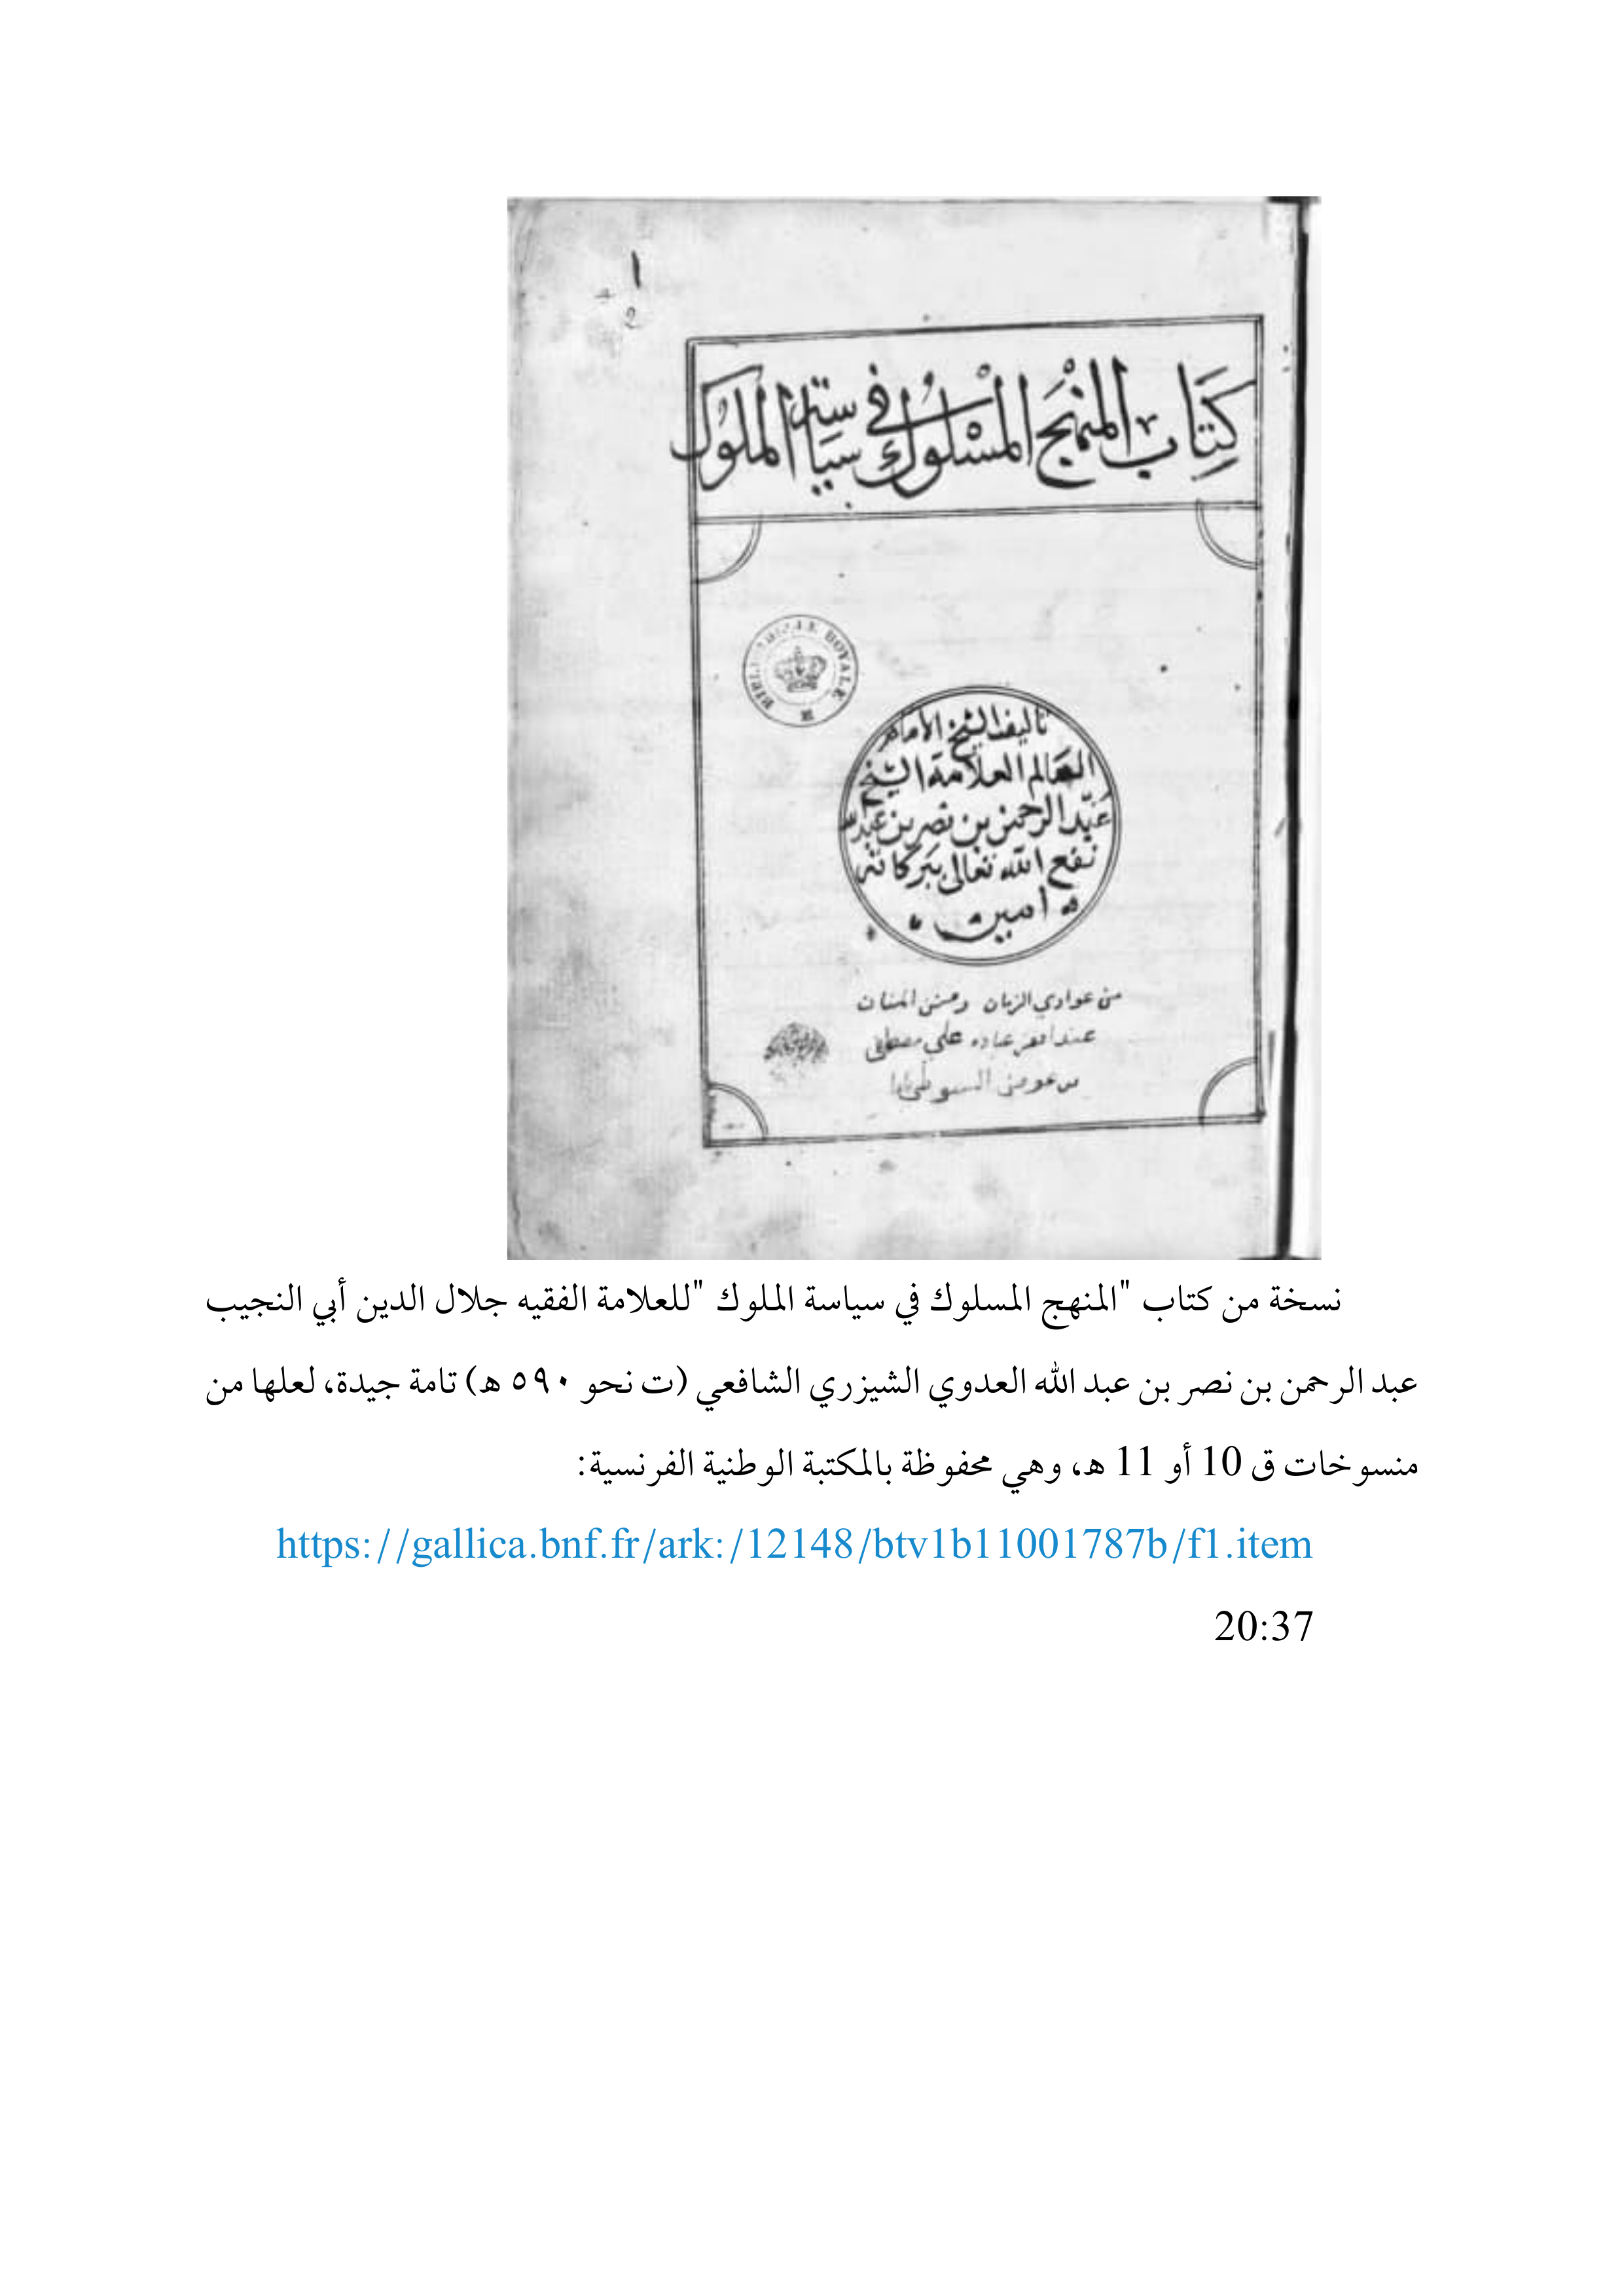 ١
2
كِتَاب المنْهَج المسْلُوك في سيَاسة الملُوك
BIBLIOTHECAE ROYALE
تاليف الشيخ الامام
العالم العلامة الشيخ
عبد الرحمن بن نصر بن عبد الله
نفع الله تعالى ببركاته
امين
من عوادي الزمان
علي مصطفى
نسخة من كتاب "المنهج المسلوك في سياسة الملوك "للعلامة الفقيه جلال الدين أبي النجيب
عبد الرحمن بن نصر بن عبد الله العدوي الشيزري الشافعي (ت نحو ٥٩٠ هـ) تامة جيدة، لعلها من
منسوخات ق 10 أو 11 هـ، وهي محفوظة بالمكتبة الوطنية الفرنسية:
https://gallica.bnf.fr/ark:/12148/btv1b11001787b/f1.item
20:37